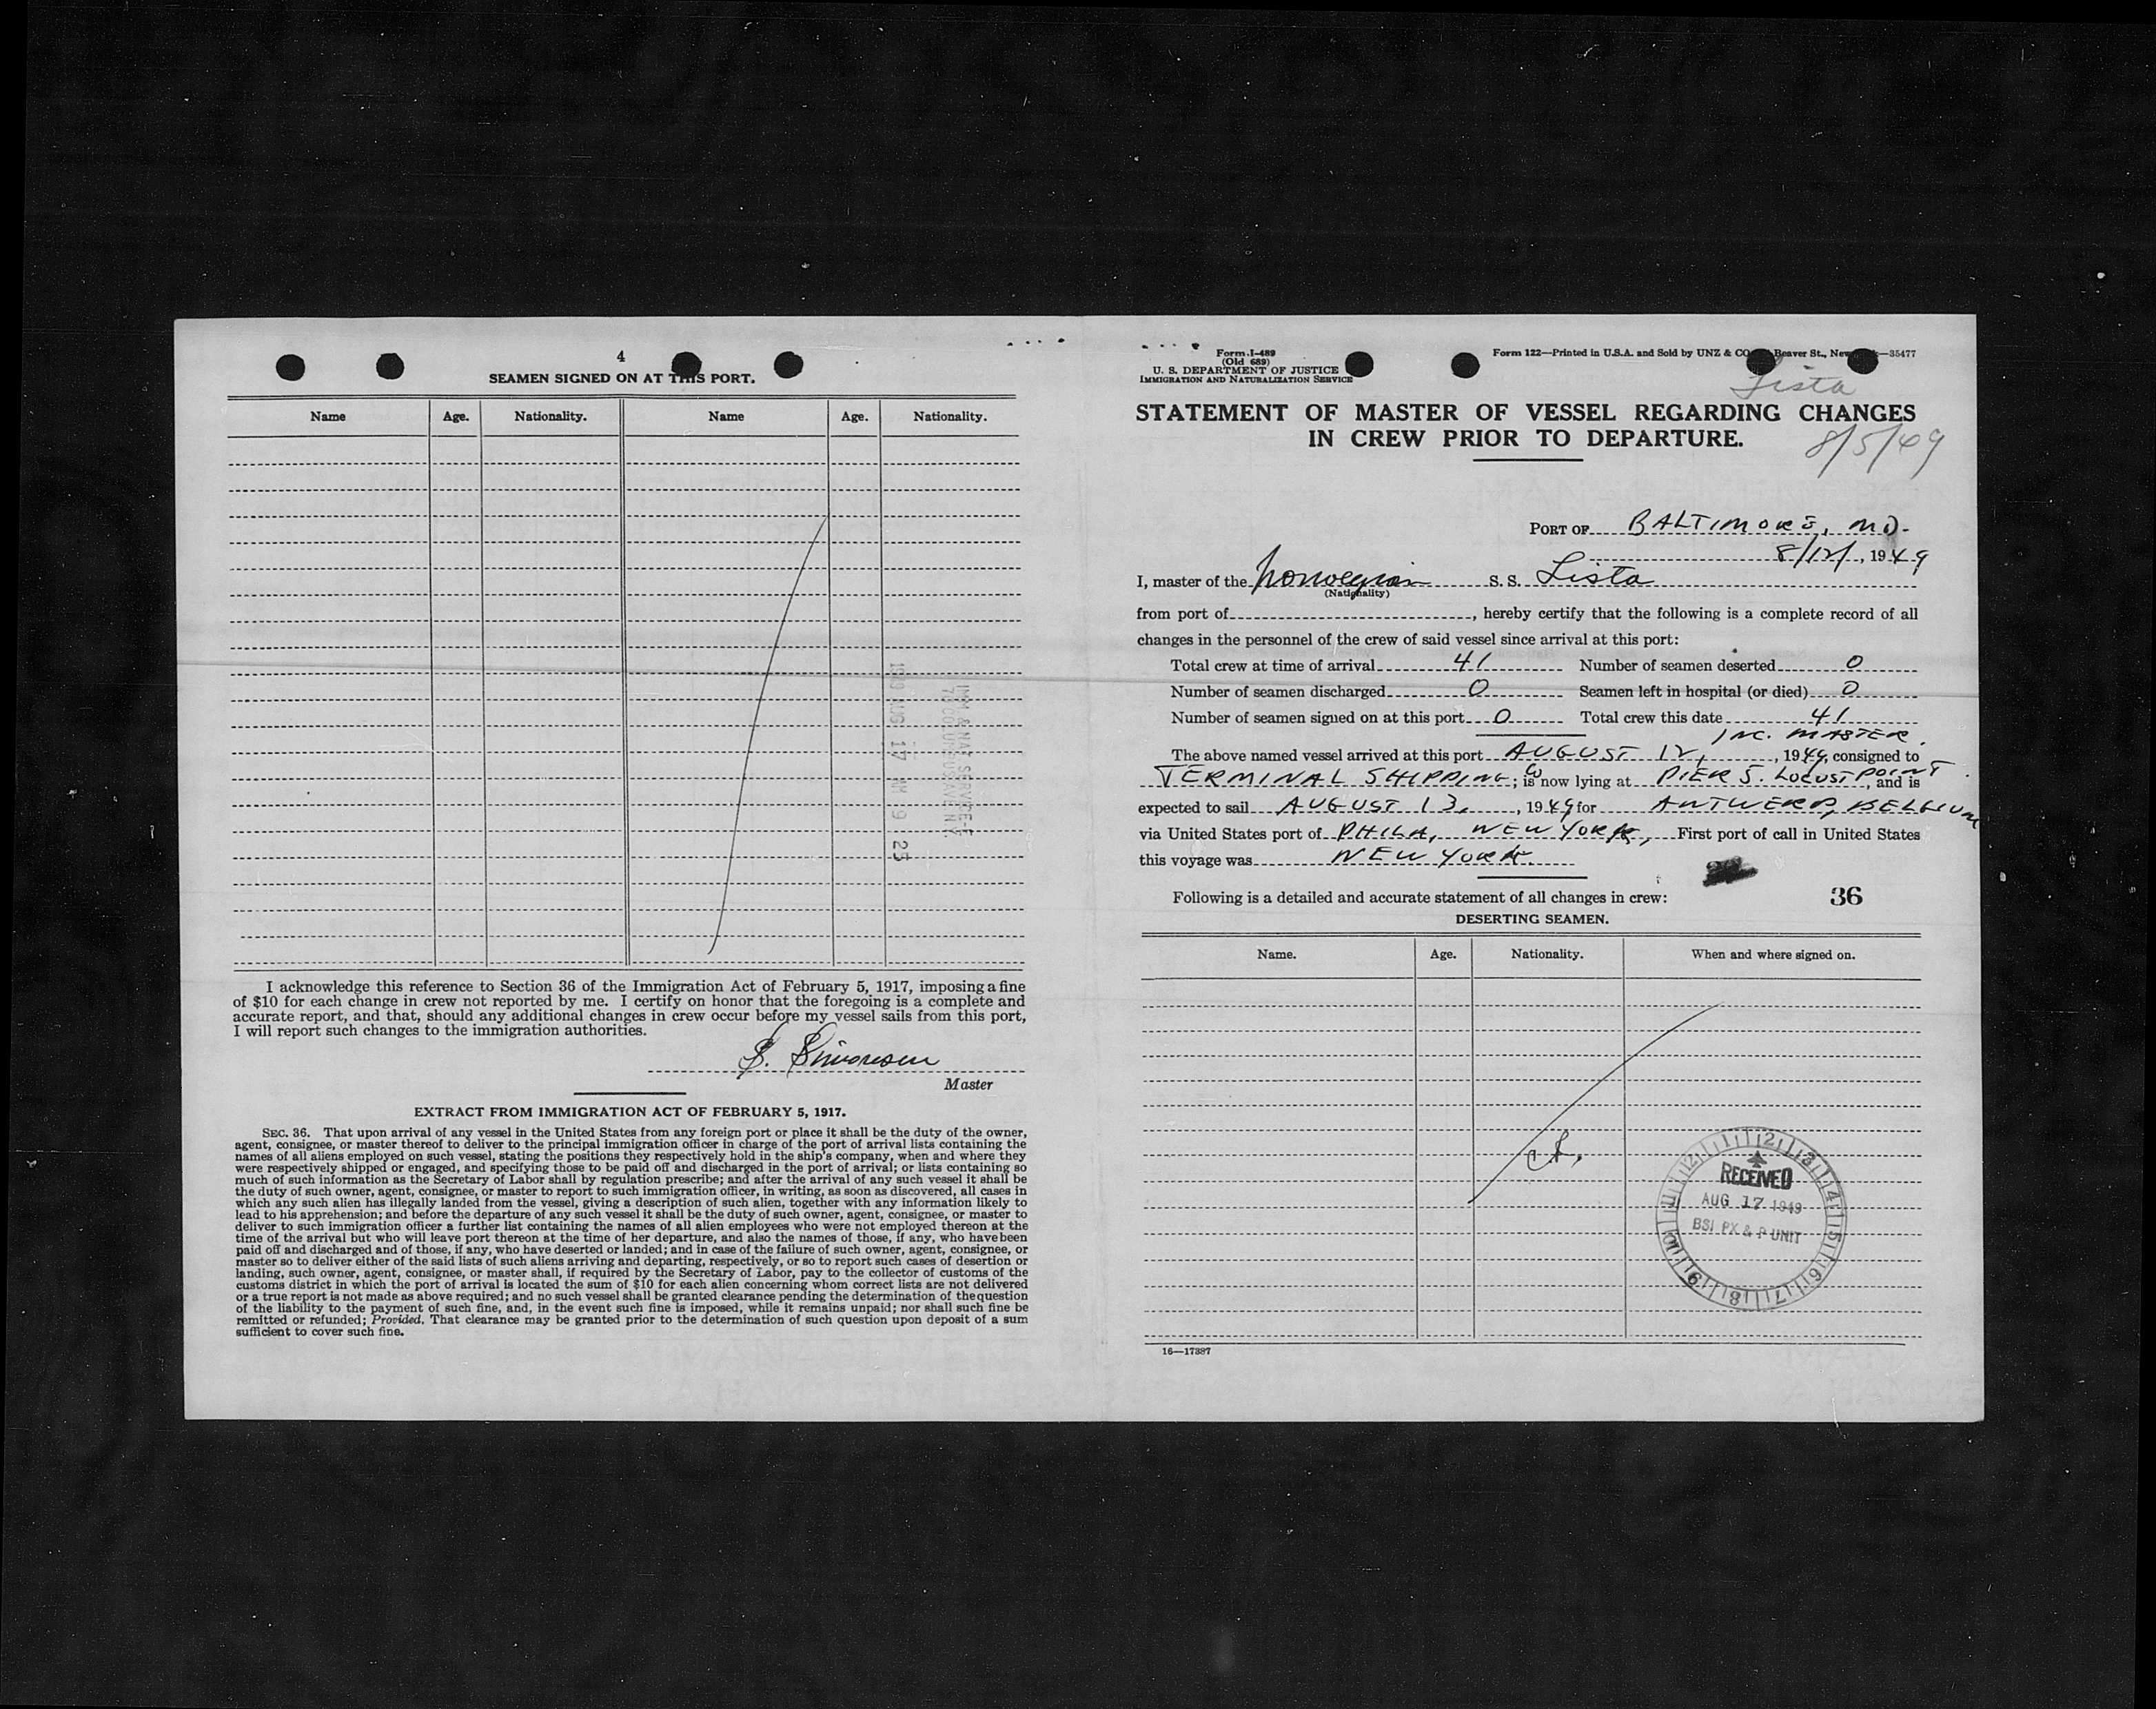 4
SEAMEN SIGNED ON AT THIS PORT.
Name Age. Nationality. Name Age. Nationality.
1949 AUG 17 AM 9 25
I acknowledge this reference to Section 36 of the Immigration Act of February 5, 1917, imposing a fine
of $10 for each change in crew not reported by me. I certify on honor that the foregoing is a complete and
accurate report, and that, should any additional changes in crew occur before my vessel sails from this port,
I will report such changes to the immigration authorities.
S. Simonsen
Master
EXTRACT FROM IMMIGRATION ACT OF FEBRUARY 5, 1917.
SEC. 36. That upon arrival of any vessel in the United States from any foreign port or place it shall be the duty of the owner,
agent, consignee, or master thereof to deliver to the principal immigration officer in charge of the port of arrival lists containing the
names of all aliens employed on such vessel, stating the positions they respectively hold in the ship's company, when and where they
were respectively shipped or engaged, and specifying those to be paid off and discharged in the port of arrival; or lists containing so
much of such information as the Secretary of Labor shall by regulation prescribe; and after the arrival of any such vessel it shall be
the duty of such owner, agent, consignee, or master to report to such immigration officer, in writing, as soon as discovered, all cases in
which any such alien has illegally landed from the vessel, giving a description of such alien, together with any information likely to
lead to his apprehension; and before the departure of any such vessel it shall be the duty of such owner, agent, consignee, or master to
deliver to such immigration officer a further list containing the names of all alien employees who were not employed thereon at the
time of the arrival but who will leave port thereon at the time of her departure, and also the names of those, if any, who have been
paid off and discharged and of those, if any, who have deserted or landed; and in case of the failure of such owner, agent, consignee, or
master so to deliver either of the said lists of such aliens arriving and departing, respectively, or so to report such cases of desertion or
landing, such owner, agent, consignee, or master shall, if required by the Secretary of Labor, pay to the collector of customs of the
customs district in which the port of arrival is located the sum of $10 for each alien concerning whom correct lists are not delivered
or a true report is not made as above required; and no such vessel shall be granted clearance pending the determination of the question
of the liability to the payment of such fine, and, in the event such fine is imposed, while it remains unpaid; nor shall such fine be
remitted or refunded; Provided, That clearance may be granted prior to the determination of such question upon deposit of a sum
sufficient to cover such fine.
Form I-489
(Old 689)
U. S. DEPARTMENT OF JUSTICE
IMMIGRATION AND NATURALIZATION SERVICE
Form 122—Printed in U.S.A. and Sold by UNZ & CO Beaver St., New —35477
Lista
STATEMENT OF MASTER OF VESSEL REGARDING CHANGES
IN CREW PRIOR TO DEPARTURE.
8/5/49
PORT OF BALTIMORE, MD.
8/12/, 1949
I, master of the Norwegian S. S. Lista
(Nationality)
from port of , hereby certify that the following is a complete record of all
changes in the personnel of the crew of said vessel since arrival at this port:
Total crew at time of arrival 41 Number of seamen deserted 0
Number of seamen discharged 0 Seamen left in hospital (or died) 0
Number of seamen signed on at this port 0 Total crew this date 41
INC. MASTER.
The above named vessel arrived at this port AUGUST 12, , 1949, consigned to
TERMINAL SHIPPING Co; is now lying at PIER 5. LOCUST POINT, and is
expected to sail AUGUST 13, , 1949 for ANTWERP, BELGIUM
via United States port of PHILA, NEW YORK, First port of call in United States
this voyage was NEW YORK.
Following is a detailed and accurate statement of all changes in crew: 36
DESERTING SEAMEN.
Name. Age. Nationality. When and where signed on.
RECEIVED
AUG 17 1949
BSI PX & P UNIT
16—17387